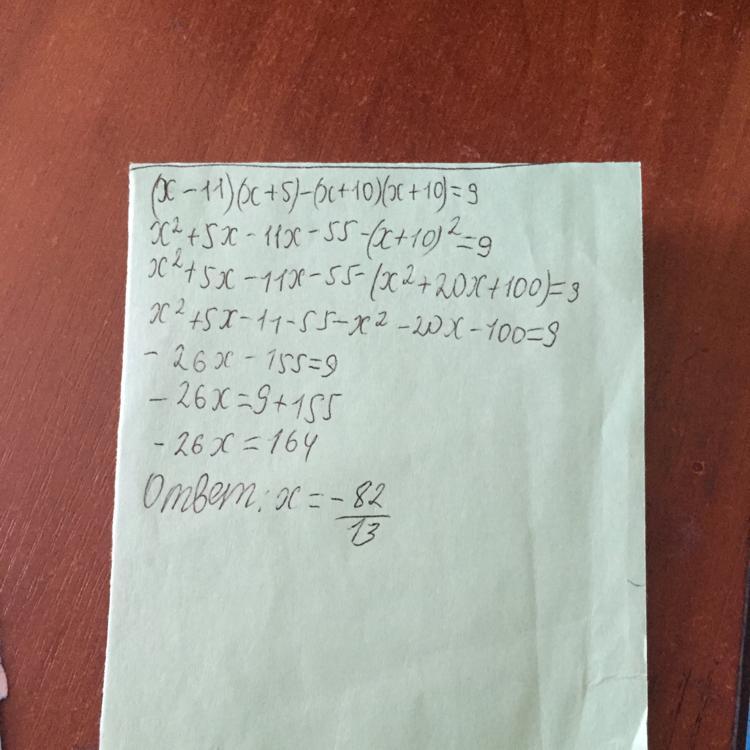 (x-11)(x+5)-(x+10)(x+10)=9
x²+5x-11x-55-(x+10)²=9
x²+5x-11x-55-(x²+20x+100)=9
x²+5x-11-55-x²-20x-100=9
-26x-155=9
-26x=9+155
-26x=164
Ответ: x=-82/13